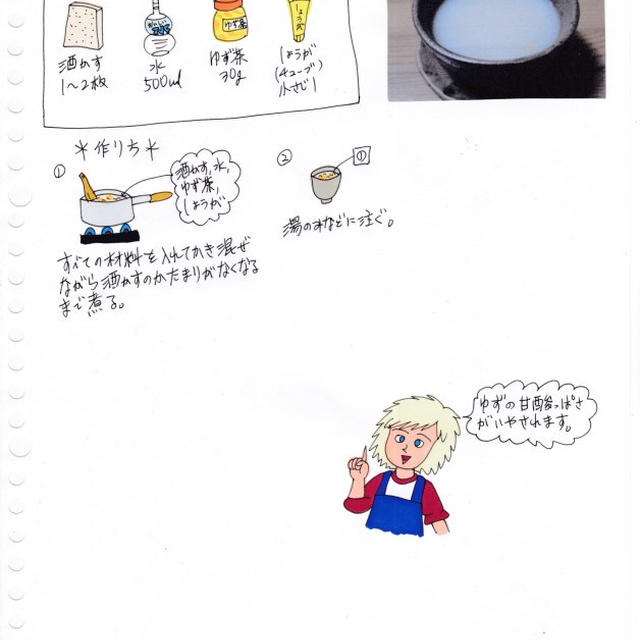 酒かす
1~2枚
水
500ml
ゆず茶
ゆず茶
30g
しょうが
しょうが
(チューブ)
小さじ1
*作り方*
①
酒かす,水,
ゆず茶,
しょうが
すべての材料を入れてかき混ぜ
ながら酒かすのかたまりがなくなる
まで煮る。
②
①
湯のみなどに注ぐ。
ゆずの甘酸っぱさ
がいやされます。